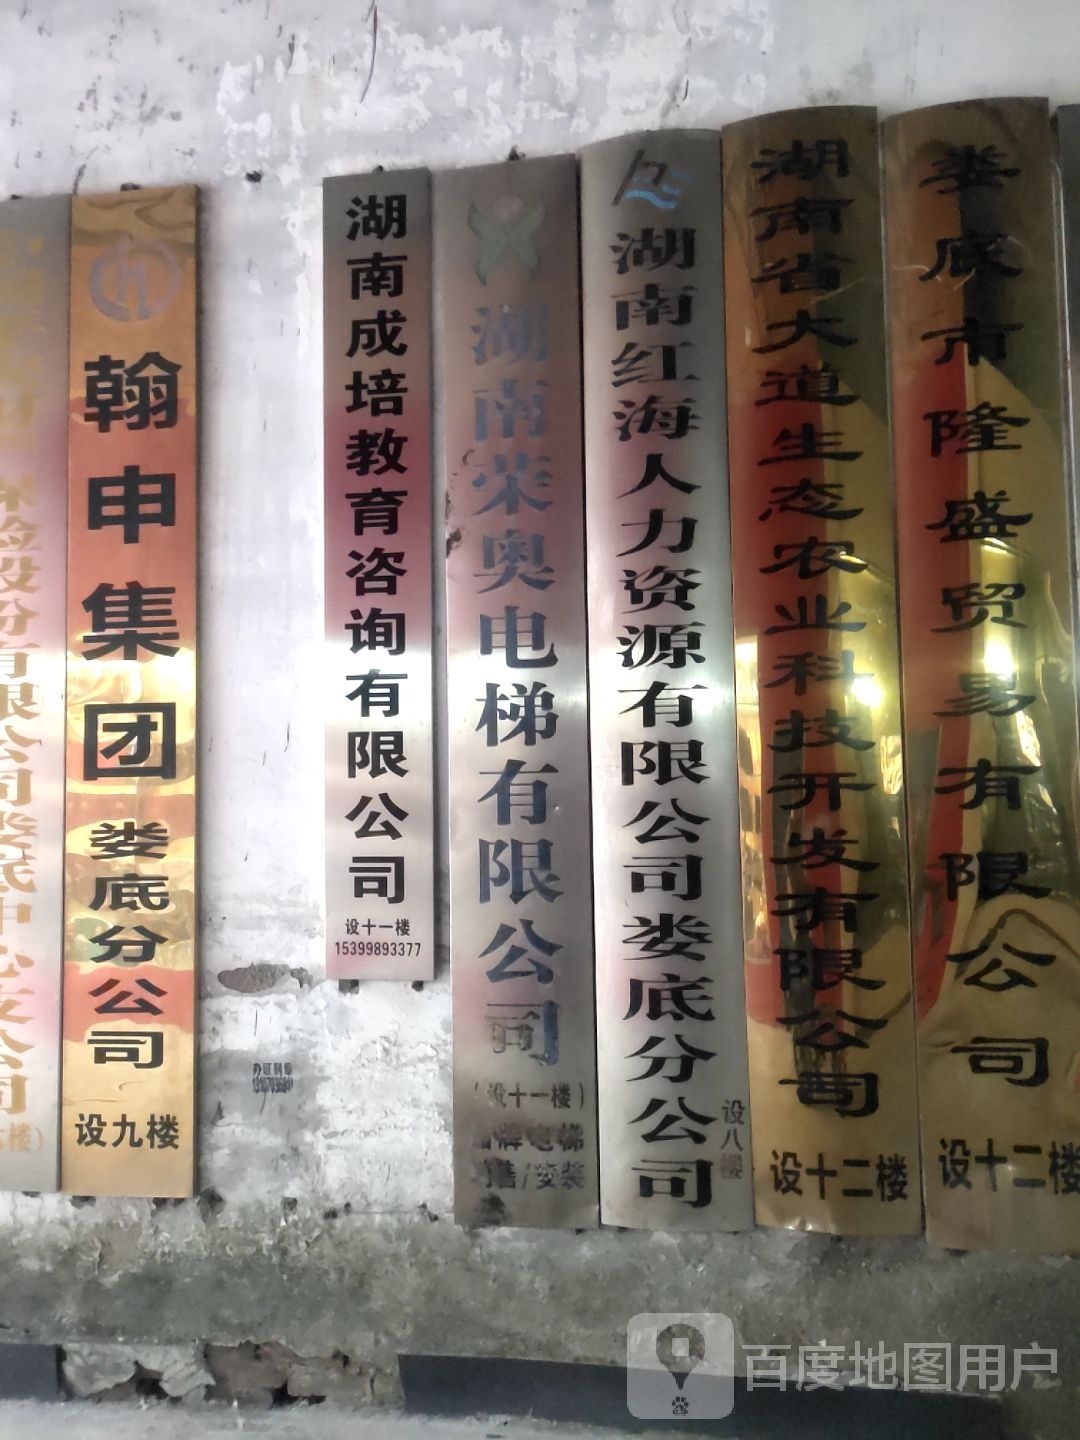 保险股份有限公司娄底中心支公司
翰申集团娄底分公司
设九楼
湖南成培教育咨询有限公司
设十一楼
15399893377
办证刻章
湖南荣奥电梯有限公司
(设十一楼)
品牌电梯
销售/安装
湖南红海人力资源有限公司娄底分公司
设八楼
湖南省大道生态农业科技开发有限公司
设十二楼
娄底市隆盛贸易有限公司
设十二楼
百度地图用户